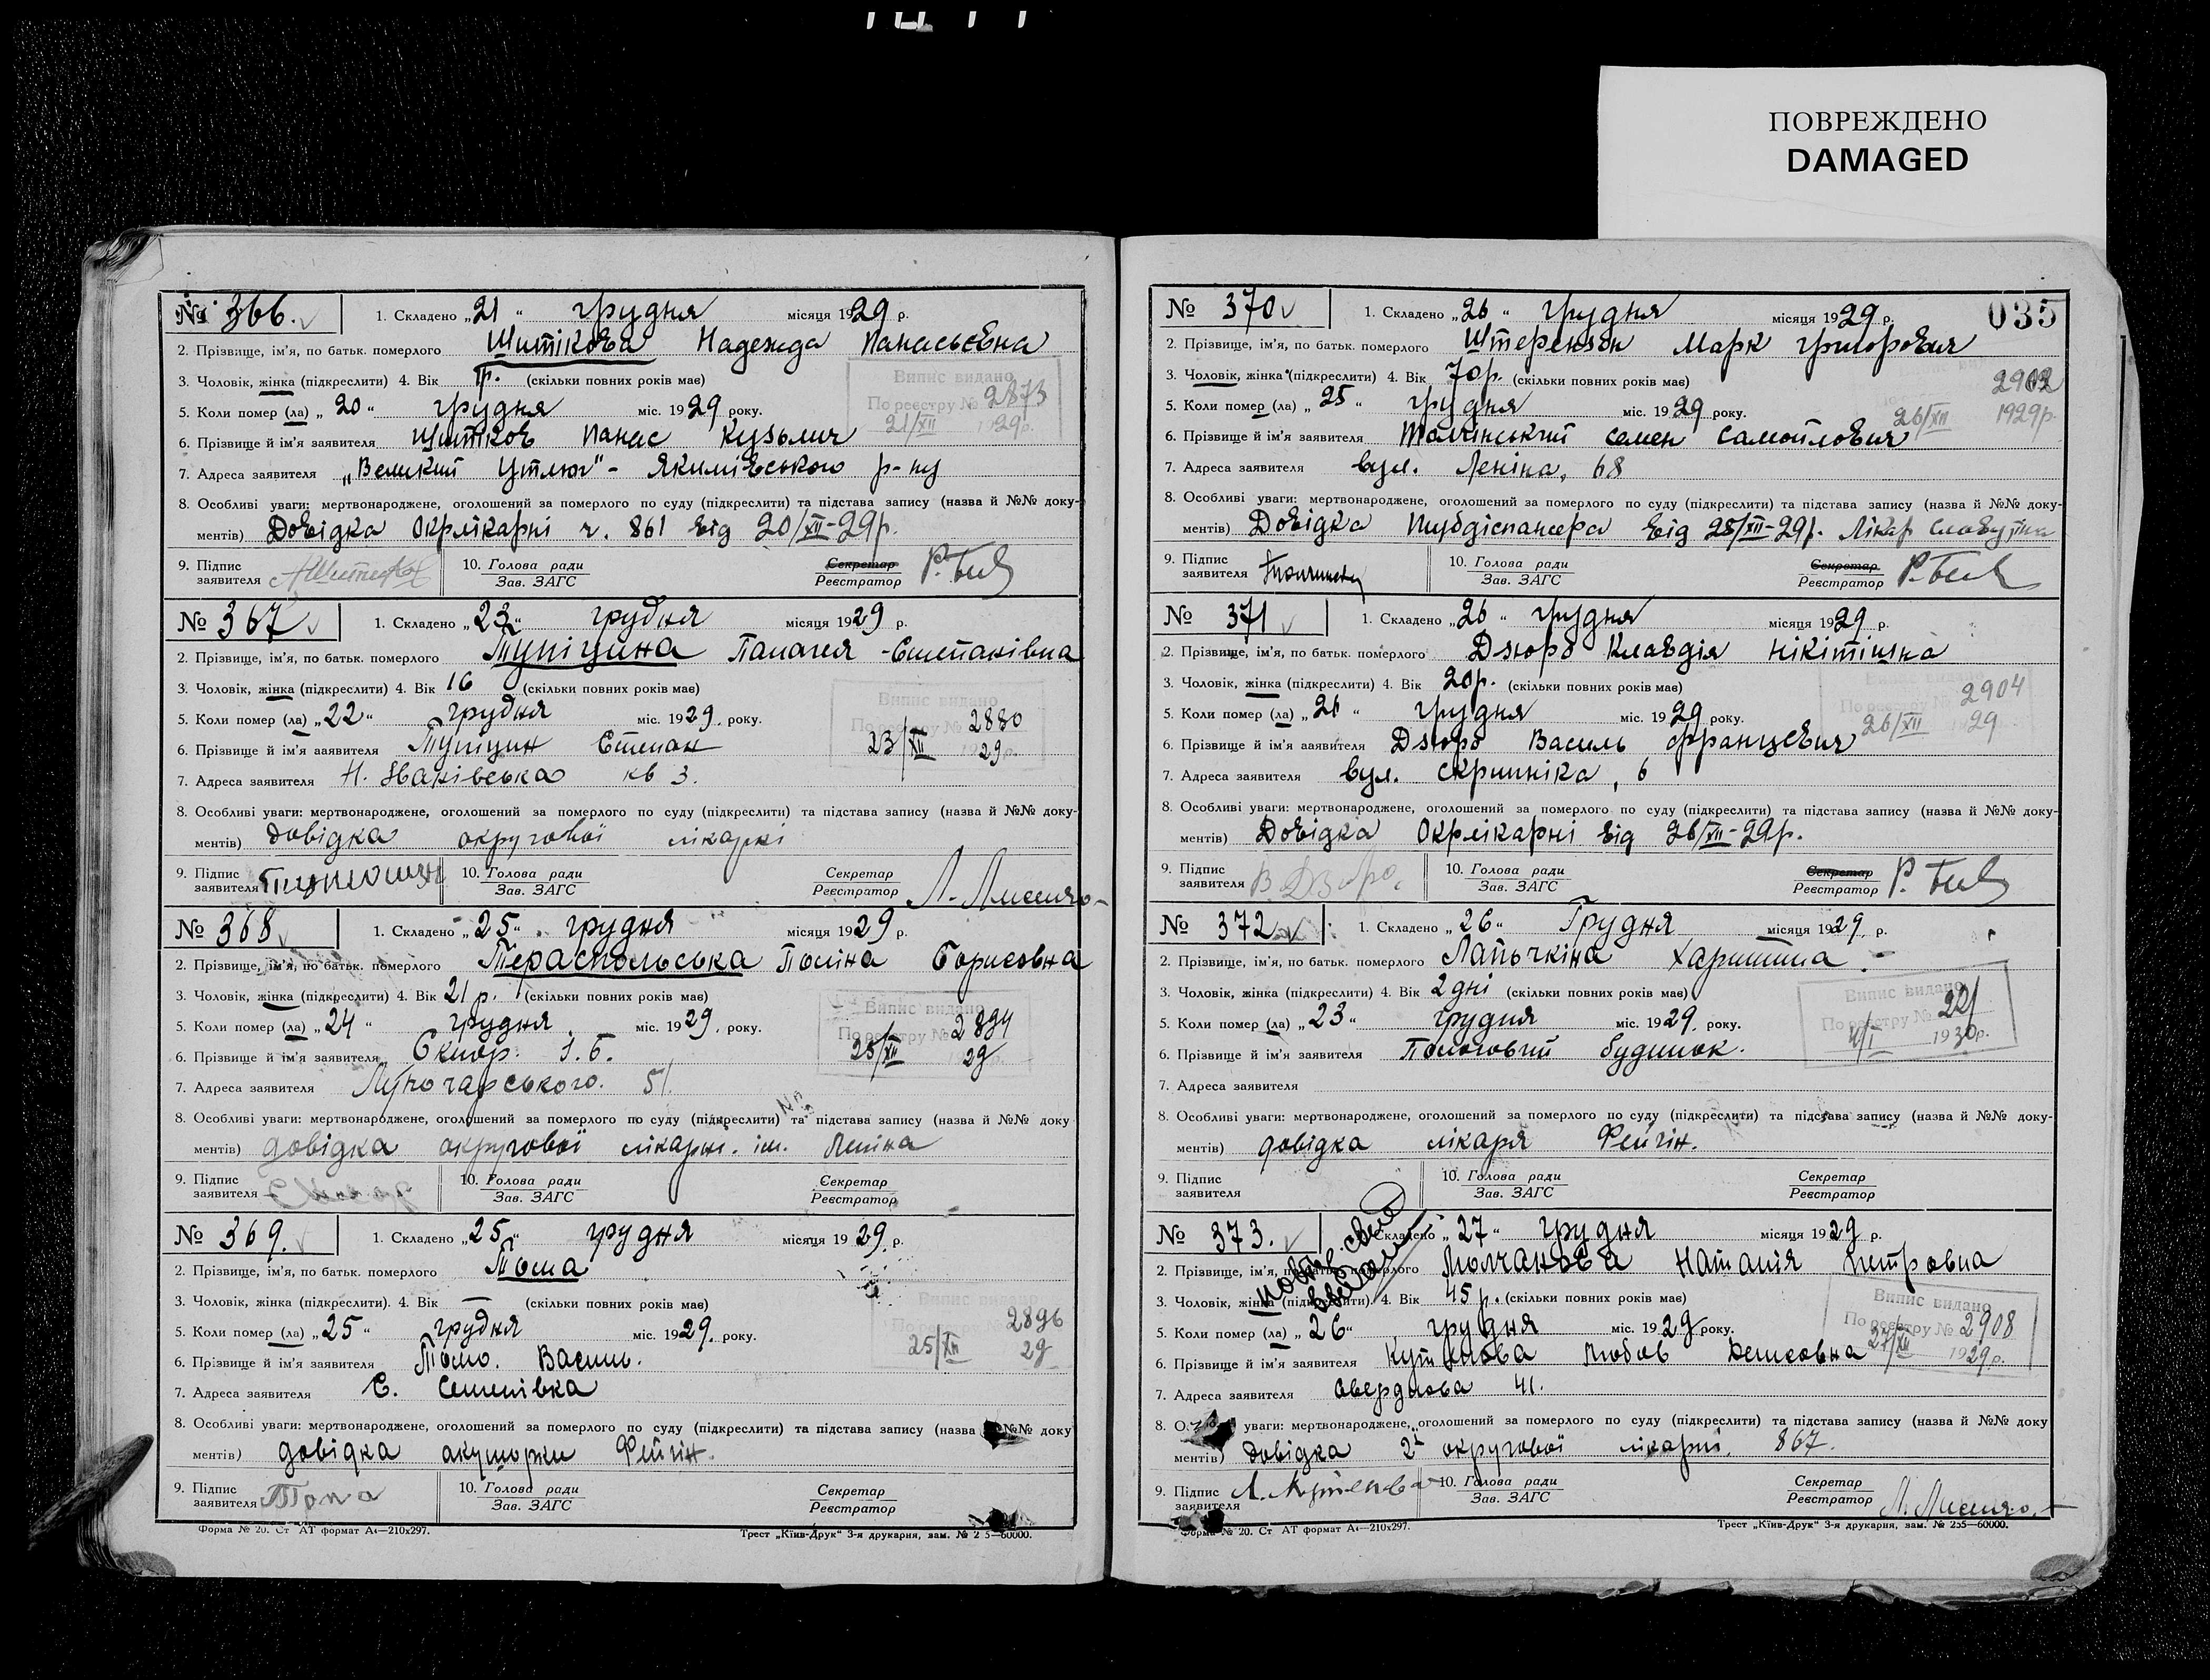 ПОВРЕЖДЕНО
DAMAGED
№ 366. 1. Складено „21“ грудня місяця 1929 р.
2. Прізвище, ім'я, по батьк. померлого Шитікова Надежда Панасьєвна
3. Чоловік, жінка (підкреслити) 4. Вік (скільки повних років має)
Випис видано
5. Коли помер (ла) „20“ грудня міс. 1929 року.
По реєстру № 2873
21/XII 1929р.
6. Прізвище й ім'я заявителя Шитіков Панас Кузьмич
7. Адреса заявителя „Великий Утлюг“ - Якимівського р-ну
8. Особливі уваги: мертвонароджене, оголошений за померлого по суду (підкреслити) та підстава запису (назва й №№ доку-
ментів) Довідка Окрлікарні ч. 861 від 20/XII-29р.
9. Підпис заявителя
10. Голова ради
Зав. ЗАГС
Секретар
Реєстратор
№ 367 1. Складено „23“ грудня місяця 1929 р.
2. Прізвище, ім'я, по батьк. померлого Тупіцина Палагея Степанівна
3. Чоловік, жінка (підкреслити) 4. Вік 16 (скільки повних років має)
Випис видано
5. Коли помер (ла) „22“ грудня міс. 1929 року.
По реєстру № 2880
23/XII 29р.
6. Прізвище й ім'я заявителя Тупіцин Степан
7. Адреса заявителя кв 3.
8. Особливі уваги: мертвонароджене, оголошений за померлого по суду (підкреслити) та підстава запису (назва й №№ доку-
ментів) довідка округової лікарні
9. Підпис заявителя
10. Голова ради
Зав. ЗАГС
Секретар
Реєстратор
№ 368 1. Складено „25“ грудня місяця 1929 р.
2. Прізвище, ім'я, по батьк. померлого Тераспольська Поліна Борисовна
3. Чоловік, жінка (підкреслити) 4. Вік 21 р. (скільки повних років має)
Випис видано
5. Коли помер (ла) „24“ грудня міс. 1929 року.
По реєстру № 2894
25/XII 29
6. Прізвище й ім'я заявителя
7. Адреса заявителя Луночарського. 51
8. Особливі уваги: мертвонароджене, оголошений за померлого по суду (підкреслити) та підстава запису (назва й №№ доку
ментів) довідка округової лікарн. ім. Леніна
9. Підпис заявителя
10. Голова ради
Зав. ЗАГС
Секретар
Реєстратор
№ 369. 1. Складено „25“ грудня місяця 1929. р.
2. Прізвище, ім'я, по батьк. померлого Тома
3. Чоловік, жінка (підкреслити). 4. Вік — (скільки повних років має)
Випис видано
5. Коли помер (ла) „25“ грудня міс. 1929. року.
2896
25/XII 29
6. Прізвище й ім'я заявителя Томо. Василь.
7. Адреса заявителя С. Семенівка
8. Особливі уваги: мертвонароджене, оголошений за померлого по суду (підкреслити) та підстава запису (назва №№ доку
ментів) довідка акушорки Фейгін.
9. Підпис заявителя Тома
10. Голова ради
Зав. ЗАГС
Секретар
Реєстратор
Форма № 20. Ст АТ формат А4—210х297.
Трест „Київ-Друк“ 3-я друкарня, зам. № 2 5—60000.
035
№ 370 1. Складено „26“ грудня місяця 1929 р.
2. Прізвище, ім'я, по батьк. померлого Штерензон Марк Григорович
3. Чоловік, жінка (підкреслити) 4. Вік 70р. (скільки повних років має)
2902
5. Коли помер (ла) „25“ грудня міс. 1929 року.
26/XII 1929р.
6. Прізвище й ім'я заявителя Толчінський Семен Самойлович
7. Адреса заявителя вул. Леніна, 68
8. Особливі уваги: мертвонароджене, оголошений за померлого по суду (підкреслити) та підстава запису (назва й №№ доку-
ментів) Довідка від 25/XII-29р. Лікар
9. Підпис заявителя
10. Голова ради
Зав. ЗАГС
Секретар
Реєстратор
№ 371 1. Складено „26“ грудня місяця 1929 р.
2. Прізвище, ім'я, по батьк. померлого Дзюро Клавдія Нікітішна
3. Чоловік, жінка (підкреслити) 4. Вік 20р. (скільки повних років має)
2904
5. Коли помер (ла) „26“ грудня міс. 1929 року.
26/XII 29
6. Прізвище й ім'я заявителя Дзюро Василь Францевич
7. Адреса заявителя вул. Скрипніка, 6
8. Особливі уваги: мертвонароджене, оголошений за померлого по суду (підкреслити) та підстава запису (назва й №№ доку-
ментів) Довідка Окрлікарні від 26/XII-29р.
9. Підпис заявителя
10. Голова ради
Зав. ЗАГС
Секретар
Реєстратор
№ 372 1. Складено „26“ Грудня місяця 1929. р.
2. Прізвище, ім'я, по батьк. померлого Лапочкіна Харитина
3. Чоловік, жінка (підкреслити) 4. Вік 2 дні (скільки повних років має)
Випис видано
5. Коли помер (ла) „23“ грудня міс. 1929. року.
По реєстру № 22/
4/I 1930р.
6. Прізвище й ім'я заявителя Пологовий будинок.
7. Адреса заявителя
8. Особливі уваги: мертвонароджене, оголошений за померлого по суду (підкреслити) та підстава запису (назва й №№ доку-
ментів) довідка лікаря Фейгін.
9. Підпис заявителя
10. Голова ради
Зав. ЗАГС
Секретар
Реєстратор
№ 373. 1. Складено „27“ грудня місяця 1929 р.
2. Прізвище, ім'я, по батьк. померлого Молчанова Наталія Петровна
3. Чоловік, жінка (підкреслити). 4. Вік 45 р. (скільки повних років має)
Випис видано
5. Коли помер (ла) „26“ грудня міс. 1929 року.
По реєстру № 2908
27/XII 1929р.
6. Прізвище й ім'я заявителя Любов Денисовна
7. Адреса заявителя Свердлова 41.
8. уваги: мертвонароджене, оголошений за померлого по суду (підкреслити) та підстава запису (назва й №№ доку
ментів) довідка 2ї округової лікарні. 867.
9. Підпис заявителя
10. Голова ради
Зав. ЗАГС
Секретар
Реєстратор
Форма № 20. Ст АТ формат А4—210х297.
Трест „Київ-Друк“ 3-я друкарня, зам. № 255—60000.